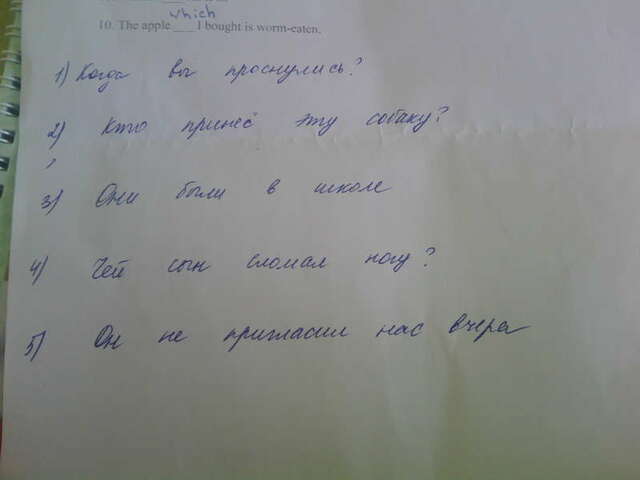 which
10. The apple ___ I bought is worm-eaten.
1) Когда вы проснулись?
2) Кто принёс эту собаку?
3) Они были в школе
4) Чей сын сломал ногу?
5) Он не пригласил нас вчера